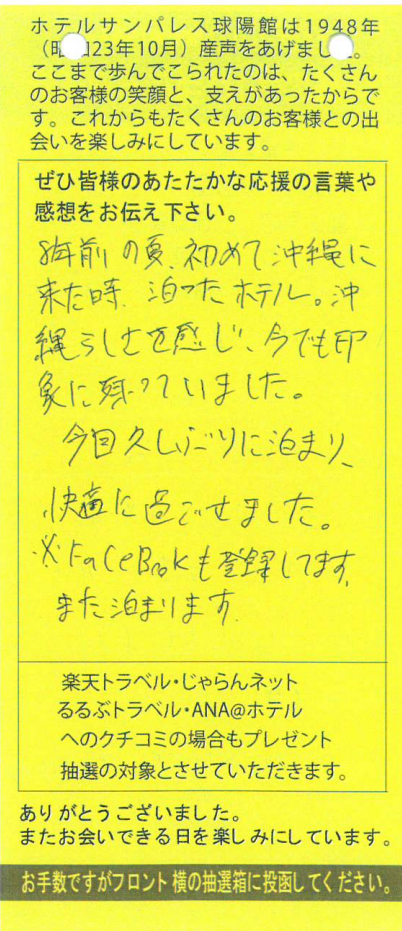 ホテルサンパレス球陽館は1948年
（昭和23年10月）産声をあげました。
ここまで歩んでこられたのは、たくさん
のお客様の笑顔と、支えがあったからで
す。これからもたくさんのお客様との出
会いを楽しみにしています。
ぜひ皆様のあたたかな応援の言葉や
感想をお伝え下さい。
8年前の夏、初めて沖縄に
来た時、泊ったホテル。沖
縄らしさを感じ、今でも印
象に残っていました。
今回久しぶりに泊まり、
快適に過ごせました。
※FaceBookも登録してます。
また泊まります。
楽天トラベル・じゃらんネット
るるぶトラベル・ANA@ホテル
へのクチコミの場合もプレゼント
抽選の対象とさせていただきます。
ありがとうございました。
またお会いできる日を楽しみにしています。
お手数ですがフロント横の抽選箱に投函してください。